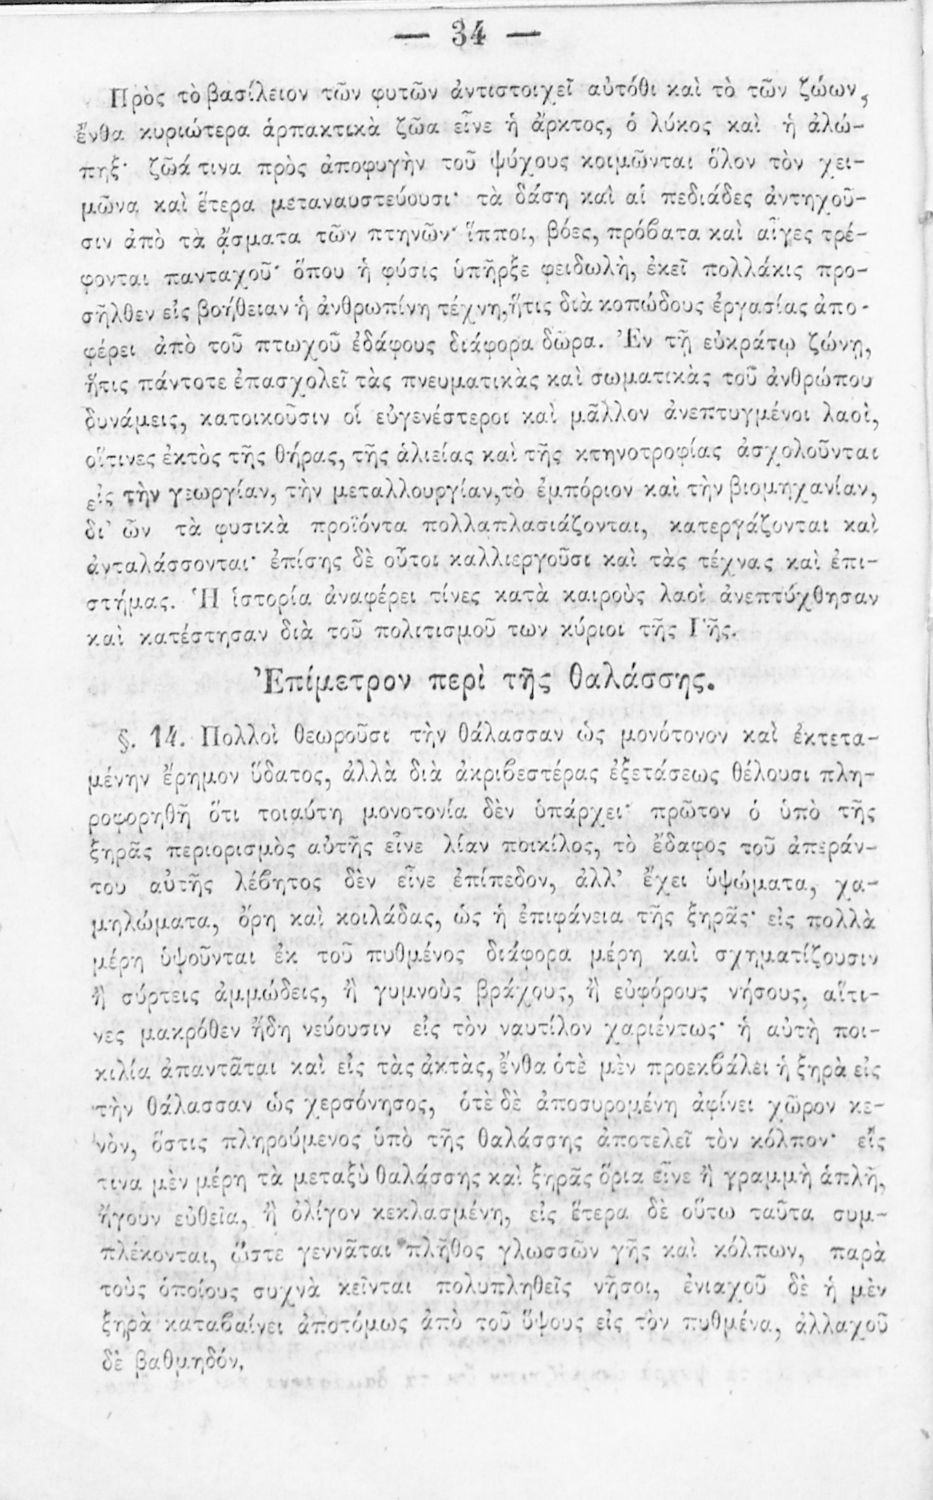 — 34 —
Πρὸς τὸ βασίλειον τῶν φυτῶν ἀντιστοιχεῖ αὐτόθι καὶ τὸ τῶν ζώων,
ἔνθα κυριώτερα ἁρπακτικὰ ζῶα εἶνε ἡ ἄρκτος, ὁ λύκος καὶ ἡ ἀλώ-
πηξ· ζῶά τινα πρὸς ἀποφυγὴν τοῦ ψύχους κοιμῶνται ὅλον τὸν χει-
μῶνα καὶ ἕτερα μεταναυστεύουσι· τὰ δάση καὶ αἱ πεδιάδες ἀντηχοῦ-
σιν ἀπὸ τὰ ᾄσματα τῶν πτηνῶν· ἵπποι, βόες, πρόβατα καὶ αἶγες τρέ-
φονται πανταχοῦ· ὅπου ἡ φύσις ὑπῆρξε φειδωλὴ, ἐκεῖ πολλάκις προ-
σῆλθεν εἰς βοήθειαν ἡ ἀνθρωπίνη τέχνη,ἥτις διὰ κοπώδους ἐργασίας ἀπο-
φέρει ἀπὸ τοῦ πτωχοῦ ἐδάφους διάφορα δῶρα. Ἐν τῇ εὐκράτῳ ζώνῃ,
ἥτις πάντοτε ἐπασχολεῖ τὰς πνευματικὰς καὶ σωματικὰς τοῦ ἀνθρώπου
δυνάμεις, κατοικοῦσιν οἱ εὐγενέστεροι καὶ μᾶλλον ἀνεπτυγμένοι λαοὶ,
οἵτινες ἐκτὸς τῆς θήρας, τῆς ἁλιείας καὶ τῆς κτηνοτροφίας ἀσχολοῦνται
εἰς τὴν γεωργίαν, τὴν μεταλλουργίαν,τὸ ἐμπόριον καὶ τὴν βιομηχανίαν,
δι' ὧν τὰ φυσικὰ προϊόντα πολλαπλασιάζονται, κατεργάζονται καὶ
ἀνταλάσσονται· ἐπίσης δὲ οὗτοι καλλιεργοῦσι καὶ τὰς τέχνας καὶ ἐπι-
στήμας. Ἡ ἱστορία ἀναφέρει τίνες κατὰ καιροὺς λαοὶ ἀνεπτύχθησαν
καὶ κατέστησαν διὰ τοῦ πολιτισμοῦ των κύριοι τῆς Γῆς.
Ἐπίμετρον περὶ τῆς θαλάσσης.
§. 14. Πολλοὶ θεωροῦσι τὴν θάλασσαν ὡς μονότονον καὶ ἐκτετα-
μένην ἔρημον ὕδατος, ἀλλὰ διὰ ἀκριβεστέρας ἐξετάσεως θέλουσι πλη-
ροφορηθῆ ὅτι τοιαύτη μονοτονία δὲν ὑπάρχει· πρῶτον ὁ ὑπὸ τῆς
ξηρᾶς περιορισμὸς αὐτῆς εἶνε λίαν ποικίλος, τὸ ἔδαφος τοῦ ἀπεράν-
του αὐτῆς λέβητος δὲν εἶνε ἐπίπεδον, ἀλλ' ἔχει ὑψώματα, χα-
μηλώματα, ὄρη καὶ κοιλάδας, ὡς ἡ ἐπιφάνεια τῆς ξηρᾶς· εἰς πολλὰ
μέρη ὑψοῦνται ἐκ τοῦ πυθμένος διάφορα μέρη καὶ σχηματίζουσιν
ἢ σύρτεις ἀμμώδεις, ἢ γυμνοὺς βράχους, ἢ εὐφόρους νήσους, αἵτι-
νες μακρόθεν ἤδη νεύουσιν εἰς τὸν ναυτίλον χαριέντως· ἡ αὐτὴ ποι-
κιλία ἀπαντᾶται καὶ εἰς τὰς ἀκτὰς, ἔνθα ὁτὲ μὲν προεκβάλει ἡ ξηρὰ εἰς
τὴν θάλασσαν ὡς χερσόνησος, ὁτὲ δὲ ἀποσυρομένη ἀφίνει χῶρον κε-
νὸν, ὅστις πληρούμενος ὑπὸ τῆς θαλάσσης ἀποτελεῖ τὸν κόλπον· εἴς
τινα μὲν μέρη τὰ μεταξὺ θαλάσσης καὶ ξηρᾶς ὅρια εἶνε ἢ γραμμὴ ἁπλῆ,
ἤγουν εὐθεῖα, ἢ ὀλίγον κεκλασμένη, εἰς ἕτερα δὲ οὕτω ταῦτα συμ-
πλέκονται, ὥστε γεννᾶται πλῆθος γλωσσῶν γῆς καὶ κόλπων, παρὰ
τοὺς ὁποίους συχνὰ κεῖνται πολυπληθεῖς νῆσοι, ἐνιαχοῦ δὲ ἡ μὲν
ξηρὰ καταβαίνει ἀποτόμως ἀπὸ τοῦ ὕψους εἰς τὸν πυθμένα, ἀλλαχοῦ
δὲ βαθμηδόν.